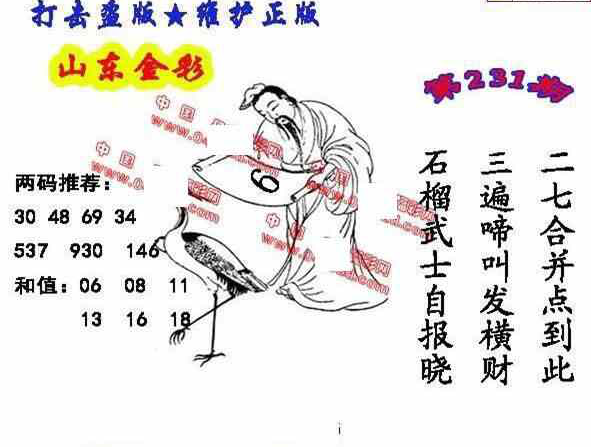 打击盗版★维护正版
山东金彩
第231期
两码推荐：
30 48 69 34
537 930 146
和值：06 08 11
13 16 18
6
二七合并点到此
三遍啼叫发横财
石榴武士自报晓
中国
www.
中国
www.
彩网
.com
中国
www.
彩网
d.com
i